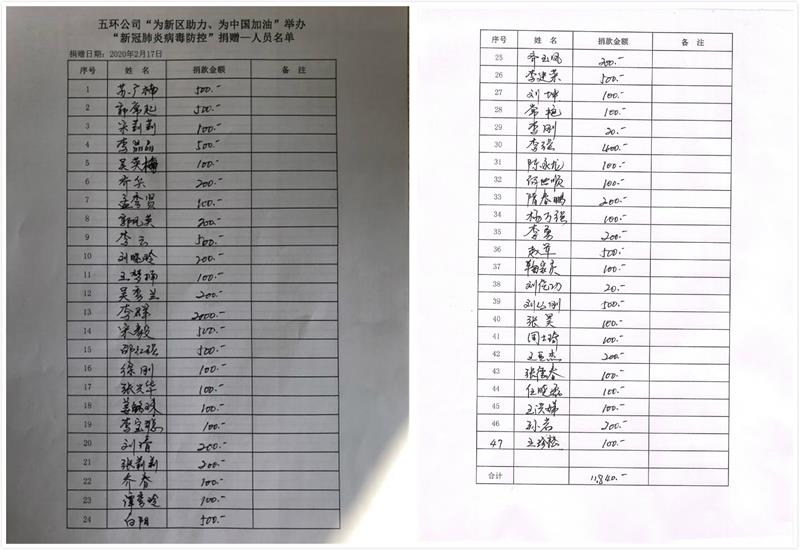 五环公司“为新区助力、为中国加油”举办
“新冠肺炎病毒防控”捐赠一人员名单
捐赠日期：2020年2月17日
序号 姓名 捐款金额 备注
1 苏广梅 500.-
2 郭常起 500.-
3 宋莉莉 100.-
4 李晶晶 500.-
5 吴英梅 100.-
6 齐乐 200.-
7 孟秀贤 100.-
8 200.-
9 李云 500.-
10 刘晓玲 200.-
11 王梦楠 100.-
12 吴秀兰 200.-
13 李群 2000.-
14 宋毅 500.-
15 邵红 500.-
16 徐刚 100.-
17 张兴华 100.-
18 100.-
19 李宝 100.-
20 刘清 200.-
21 张莉莉 200.-
22 乔春 100.-
23 谭秀玲 100.-
24 白阳 500.-
序号 姓名 捐款金额 备注
25 乔玉凤 200.-
26 李建荣 500.-
27 刘坤 100.-
28 常艳 100.-
29 李刚 20.-
30 李强 400.-
31 陈永龙 100.-
32 何世顺 100.-
33 隋春鹏 200.-
34 杨万强 100.-
35 李勇 200.-
36 赵军 500.-
37 鞠家庆 100.-
38 刘传功 20.-
39 刘刚 500.-
40 张昊 100.-
41 周士琦 100.-
42 王亚杰 200.-
43 张信春 100.-
44 任晓 100.-
45 王洪娣 100.-
46 孙岩 200.-
47 王珍 100.-
合计 11,840.-